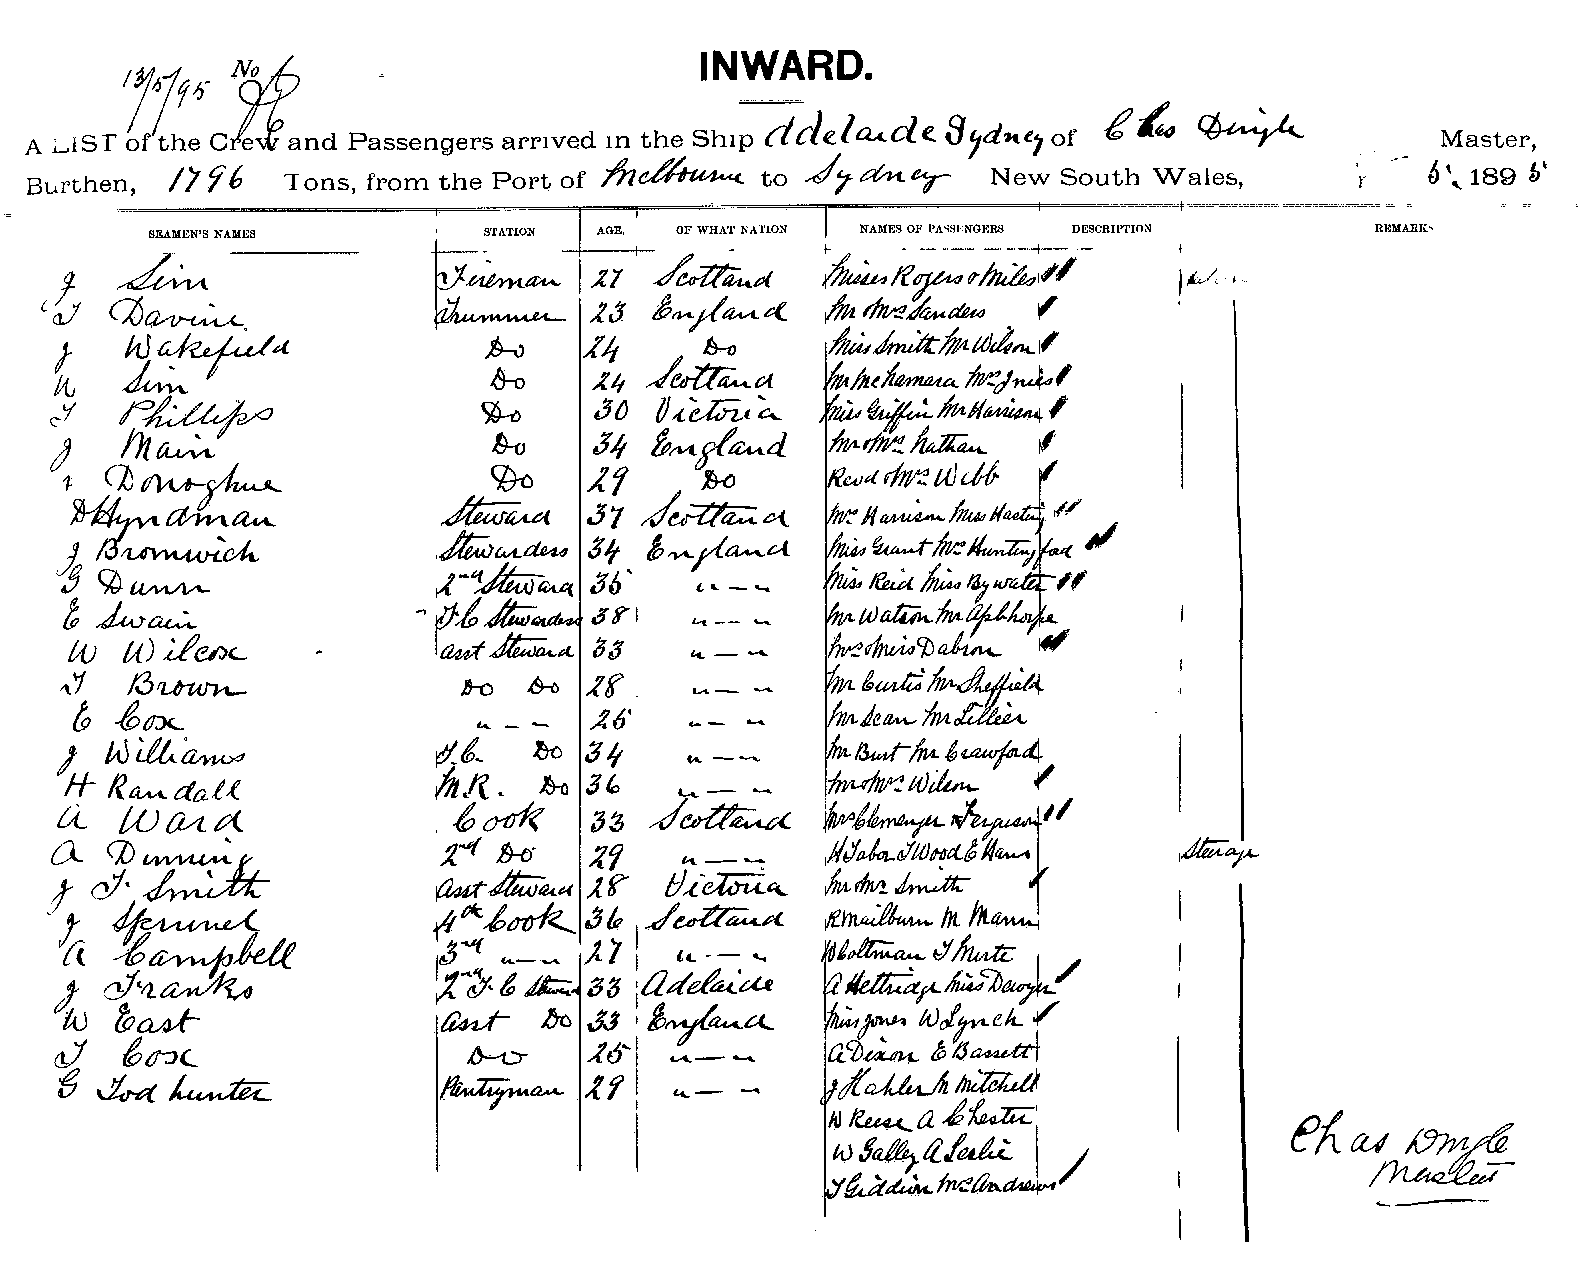 INWARD.
13/5/95 No
A LIST of the Crew and Passengers arrived in the Ship Adelaide Sydney of Chas Dingle Master,
Burthen, 1796 Tons, from the Port of Melbourne to Sydney New South Wales, 5. 1895
SEAMEN'S NAMES STATION AGE. OF WHAT NATION NAMES OF PASSENGERS DESCRIPTION REMARKS
J Sim Fireman 27 Scotland Misses Rogers & Miles
T Davine Trummer 23 England Mr & Mrs Sanders
J Wakefield Do 24 Do Miss Smith Mr Wilson
W Sim Do 24 Scotland Mr McNamara Mrs Innes
T Phillips Do 30 Victoria Miss Griffin Mr Harrison
J Main Do 34 England Mr & Mrs Nathan
Donoghue Do 29 Do Revd & Mrs Webb
D Hyndman Steward 37 Scotland Mrs Harrison Miss Hasting
J Bromwich Stewardess 34 England Miss Grant Mrs Huntingford
G Dunn 2nd Steward 35 " — " Miss Reid Miss Bywater
E Swain F.C Stewardess 38 " — " Mr Watson Mr Apthorpe
W Wilcox Asst Steward 33 " — " Mrs & Miss Dabson
T Brown Do Do 28 " — " Mr Curtis Mr Sheffield
E Cox " — — 25 " — " Mr Dean Mr Lillier
J Williams F.C. Do 34 " — " Mr Burt Mr Crawford
H Randall M.R. Do 36 " — " Mr & Mrs Wilson
A Ward Cook 33 Scotland Mrs Clemenger & Ferguson
A Dinning 2nd Do 29 " — " H Tabor T Wood E Hans Steerage
J T. Smith Asst Steward 28 Victoria Mr Mrs Smith
J 4th Cook 36 Scotland R Mailburn M Mann
A Campbell 3rd " — " 27 " — " W Coltman T
J Franks 2nd F.C Steward 33 Adelaide A Hettridge Miss Dawyer
W East Asst Do 33 England Miss Jones W Lynch
T Cox Do 25 " — " A Dixon E Bassett
G Todhunter Pantryman 29 " — — J Hahler M Mitchell
W Reese A Chester
W Galley A Leslie
T Giddion Mrs Andrews
Chas Dingle
Master